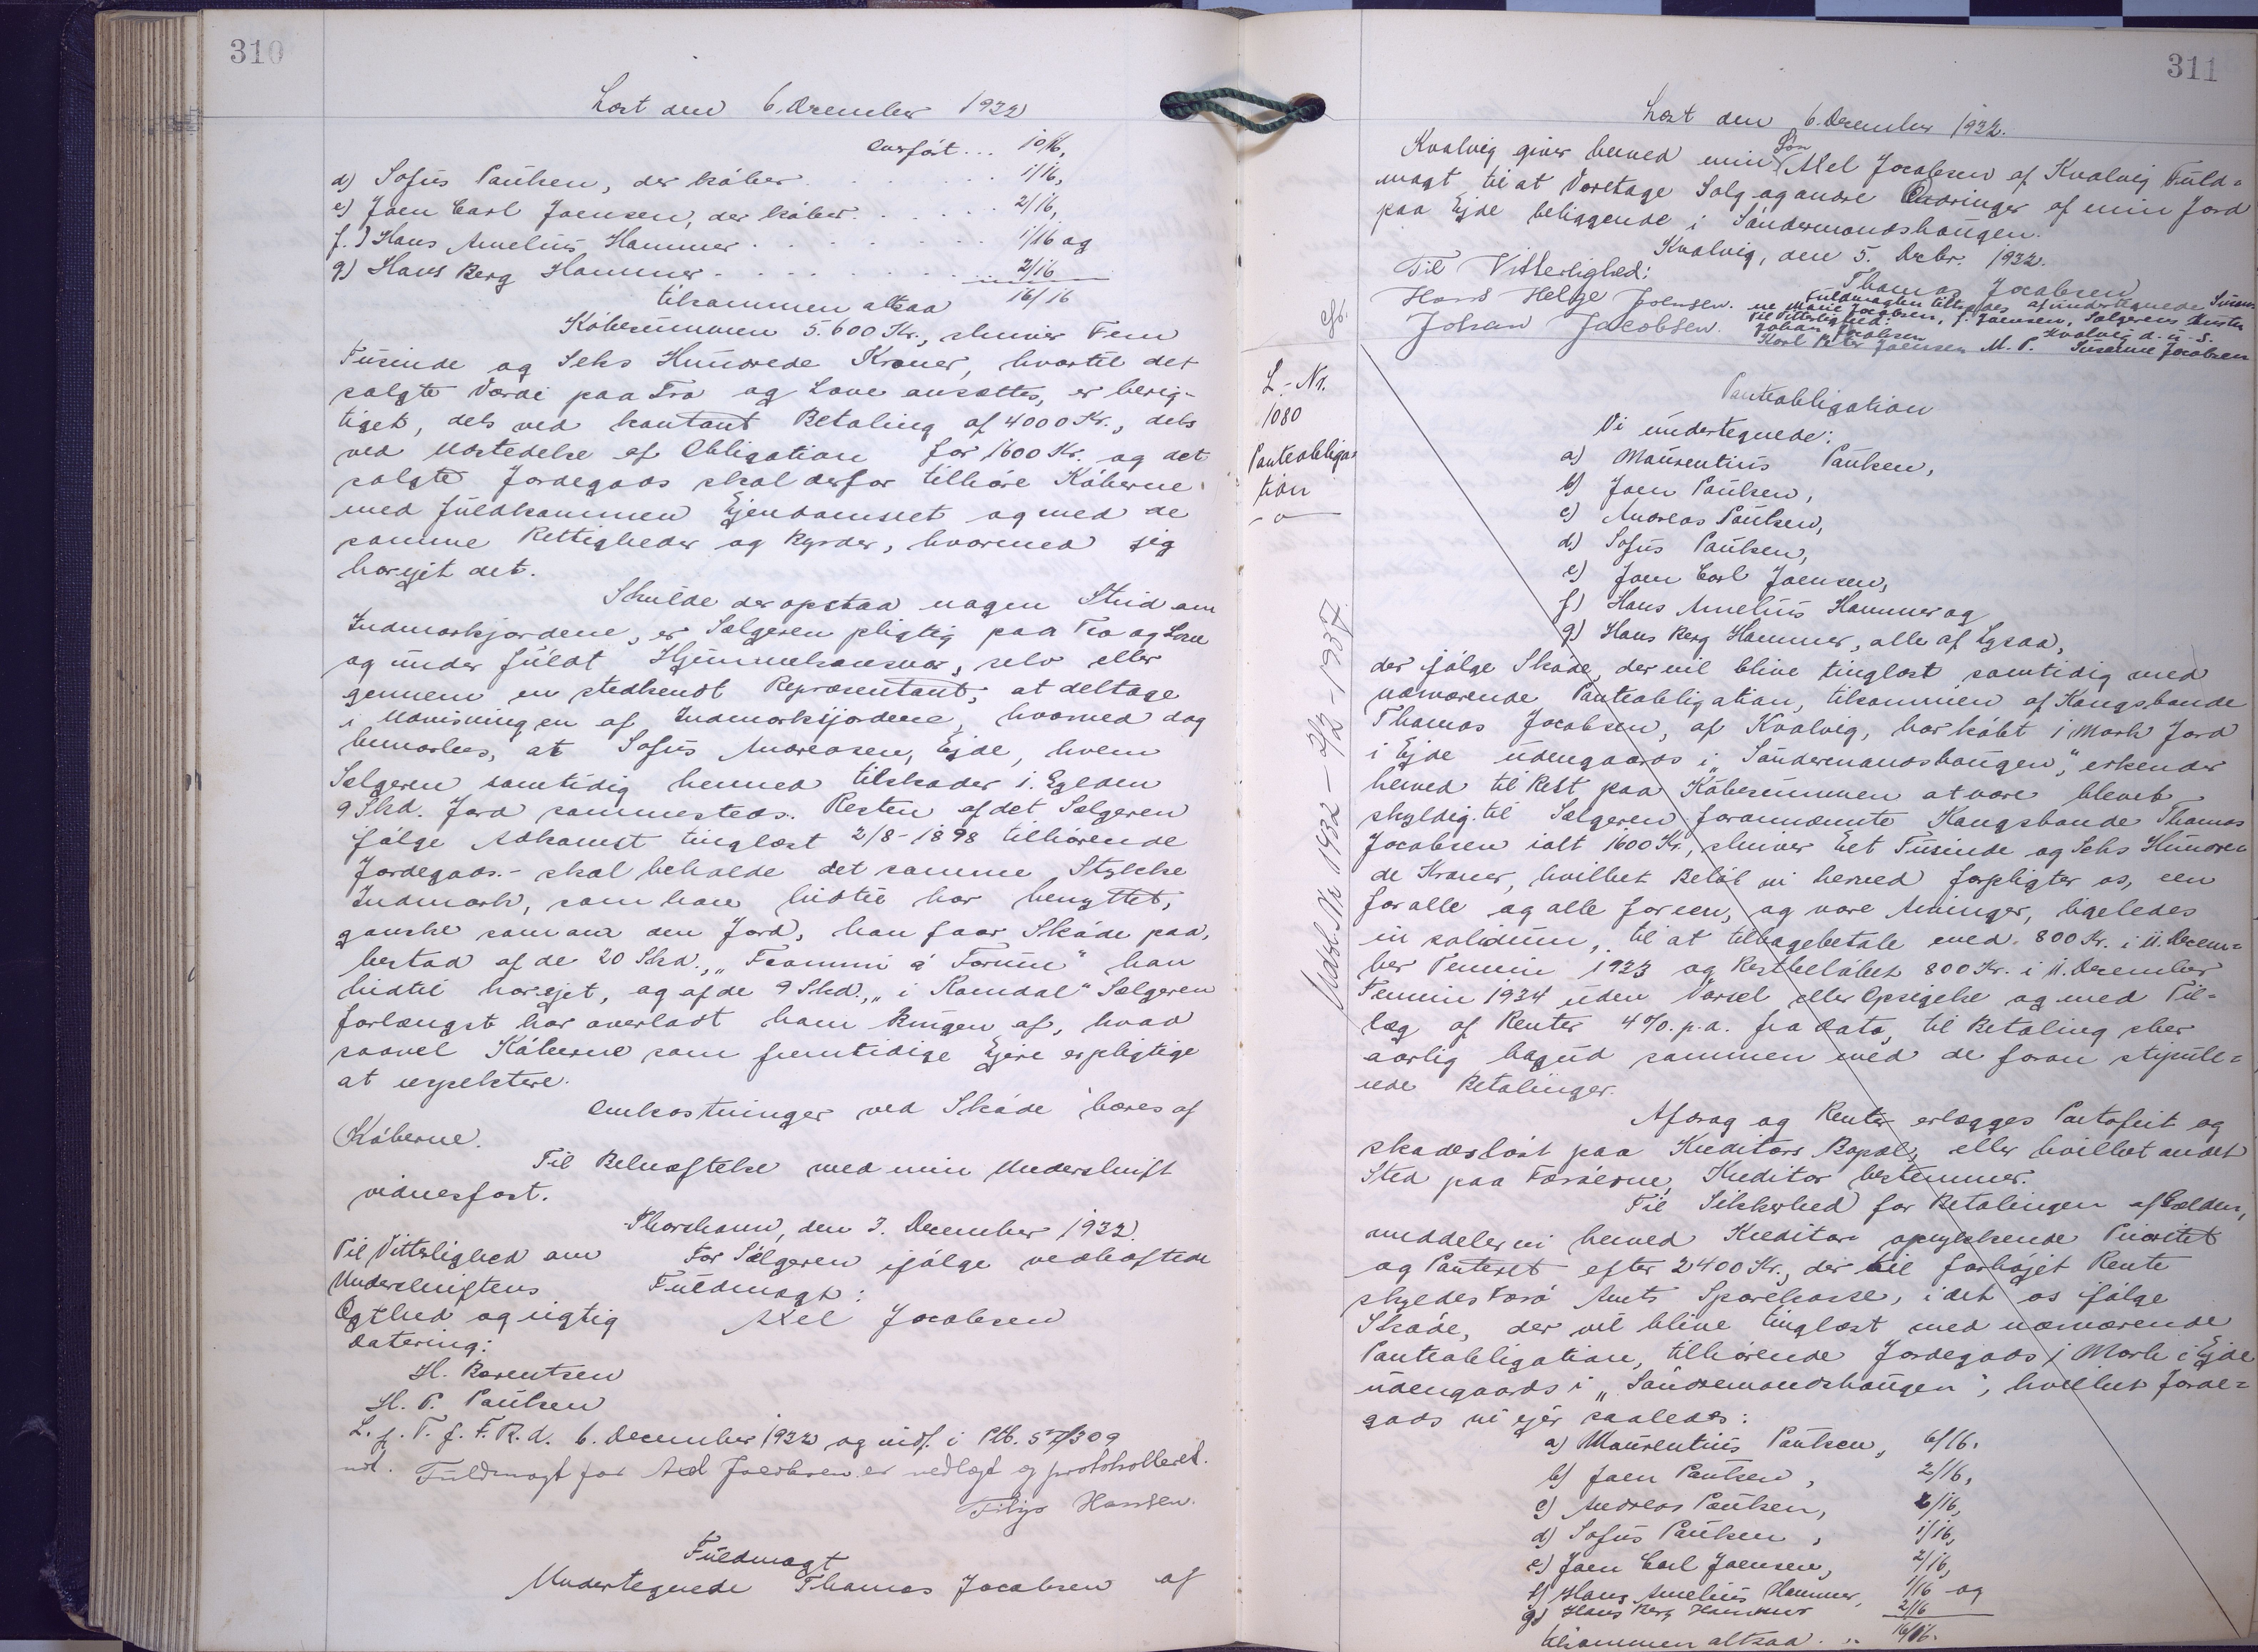 310
Læst den 6. December 1932
Overført... 10/16,
d) Sofus Paulsen, der køber . . . . . . 1/16,
e) Joen Carl Joensen, der køber . . . . . 2/16,
f.) Hans Amelius Hammer . . . . . . . 1/16 og
g) Hans Berg Hammer . . . . . . . 2/16
tilsammen altsaa 16/16
Købesummen 5.600 Kr., skriver Fem
Tusinde og Seks Hundrede Kroner, hvortil det
solgte Værdi paa Tro og Love ansættes, er berig-
tiget, dels ved kontant Betaling af 4000 Kr., dels
ved Udstedelse af Obligation for 1600 Kr. og det
solgte Jordegods skal derfor tilhøre Køberne
med fuldkommen Ejendomsret og med de
samme Rettigheder og Byrder, hvormed jeg
har ejet det.
Skulde der opstaa nogen Strid om
Indmarksjordene, er Sælgeren pligtig paa Tro og Love
og under fuldt Hjemmelsansvar, selv eller
gennem en stedkendt Repræsentant, at deltage
i Udvisningen af Indmarksjordene, hvorved dog
bemærkes, at Sofus Andreasen, Ejde, hvem
Sælgeren samtidig hermed tilskøder i. Egedom
9 Skd. Jord sammesteds. Resten af det Sælgeren
ifølge Adkomst tinglæst 2/8-1898 tilhørende
Jordegods.- skal beholde det samme Stykke
Indmark, som han hidtil har benyttet,
ganske som om den Jord, han faar Skøde paa,
bestod af de 20 Skd., "Frammi á Tørum" han
hidtil har ejet, og af de 9 Skd., "i Ramdal" Sælgeren
forlængst har overladt ham Brugen af, hvad
saavel Køberne som fremtidige Ejere er pligtige
at respektere.
Omkostninger ved Skøde bæres af
Køberne.
Til Bekræftelse med min Underskrift
vidnesfast.
Thorshavn, den 3. December 1932.
Til Vitterlighed om For Sælgeren ifølge vedhæftede
Underskriftens Fuldmagt:
Ægthed og rigtig Axel Jacobsen
Datering:
H. Barentsen
H. P. Paulsen
L. p. T. f. F. R. d. 6. December 1932 og indf. i Ptb. 57/309
ndl. Fuldmagt for Axel Jacobsen er vedlagt og protokolleret.
Filip Hansen.
Fuldmagt
Undertegnede Thomas Jacobsen af
311
Læst den 6. December 1932.
Kvalvig giver herved min Søn Axel Jacobsen af Kvalvig Fuld=
magt til at Foretage Salg og andre Ændringer af min Jord
paa Ejde beliggende i Sandermandshaugen.
Kvalvig, den 5. Decbr. 1932.
Til Vitterlighed: Thomas Jacobsen
Hans Helge Joensen. Fuldmagten tiltrædes af undertegnede Susan-
Johan Jacobsen. ne Marie Jacobsen, f. Joensen, Sælgerens Hustru
Til Vitterlighed: Kvalvig d. u. S.
Johan Jacobsen
Karl Peter Joensen M. P. Susanne Jacobsen
L.-Nr.
1080
Panteobliga-
tion
Udsl. Nr 1432 – 2/2-1937
Panteobligation
Vi undertegnede:
a) Maurentius Paulsen,
b) Joen Paulsen,
c) Andreas Paulsen,
d) Sofus Paulsen,
e) Joen Carl Joensen,
f) Hans Amelius Hammer og
g) Hans Berg Hammer, alle af Lysaa,
der ifølge Skøde, der vil blive tinglæst samtidig med
nærværende Panteobligation, tilsammen af Kongsbonde
Thomas Jacobsen, af Kvalvig, har købt 1 Mark Jord
i Ejde udengaards i "Sandermandshaugen", erkender
herved til Rest paa Købesummen at være blevet
skyldig til Sælgeren forannævnte Kongsbonde Thomas
Jacobsen ialt 1600 Kr., skriver Eet Tusinde og Seks Hundre-
de Kroner, hvilket Beløb vi herved forpligter os, een
for alle og alle for een, og vore Arvinger, ligeledes
in solidum, til at tilbagebetale med 800 Kr. i 11. Decem=
ber Termin 1933 og Restbeløbet 800 Kr. i 11. December
Termin 1934 uden Varsel eller Opsigelse og med Til-
læg af Renter 4%. p.a. fra Dato, til Betaling sker
aarlig bagud sammen med de foran stipule=
rede Betalinger.
Afdrag og Renter erlægges Portofrit og
skadesløst paa Kreditors Bopæl, eller hvilket andet
Sted paa Færøerne, Kreditor bestemmer.
Til Sikkerhed for Betalingen af Gælden,
meddeler vi herved Kreditor oprykkende Prioritet
og Panteret efter 2400 Kr., der til forhøjet Rente
skyldes Færø Amts Sparekasse, i det os ifølge
Skøde, der vil blive tinglæst med nærværende
Panteobligation, tilhørende Jordegods 1 Mark i Ejde
udengaards i "Sandermandshaugen", hvilket Jorde=
gods vi ejer saaledes:
a) Maurentius Paulsen, 6/16.
b) Joen Paulsen, 2/16,
c) Andreas Paulsen, 2/16,
d) Sofus Paulsen, 1/16,
e) Joen Carl Joensen, 2/16,
f) Hans Amelius Hammer, 1/16 og
g) Hans Berg Hammer 2/16
tilsammen altsaa. .. 16/16.